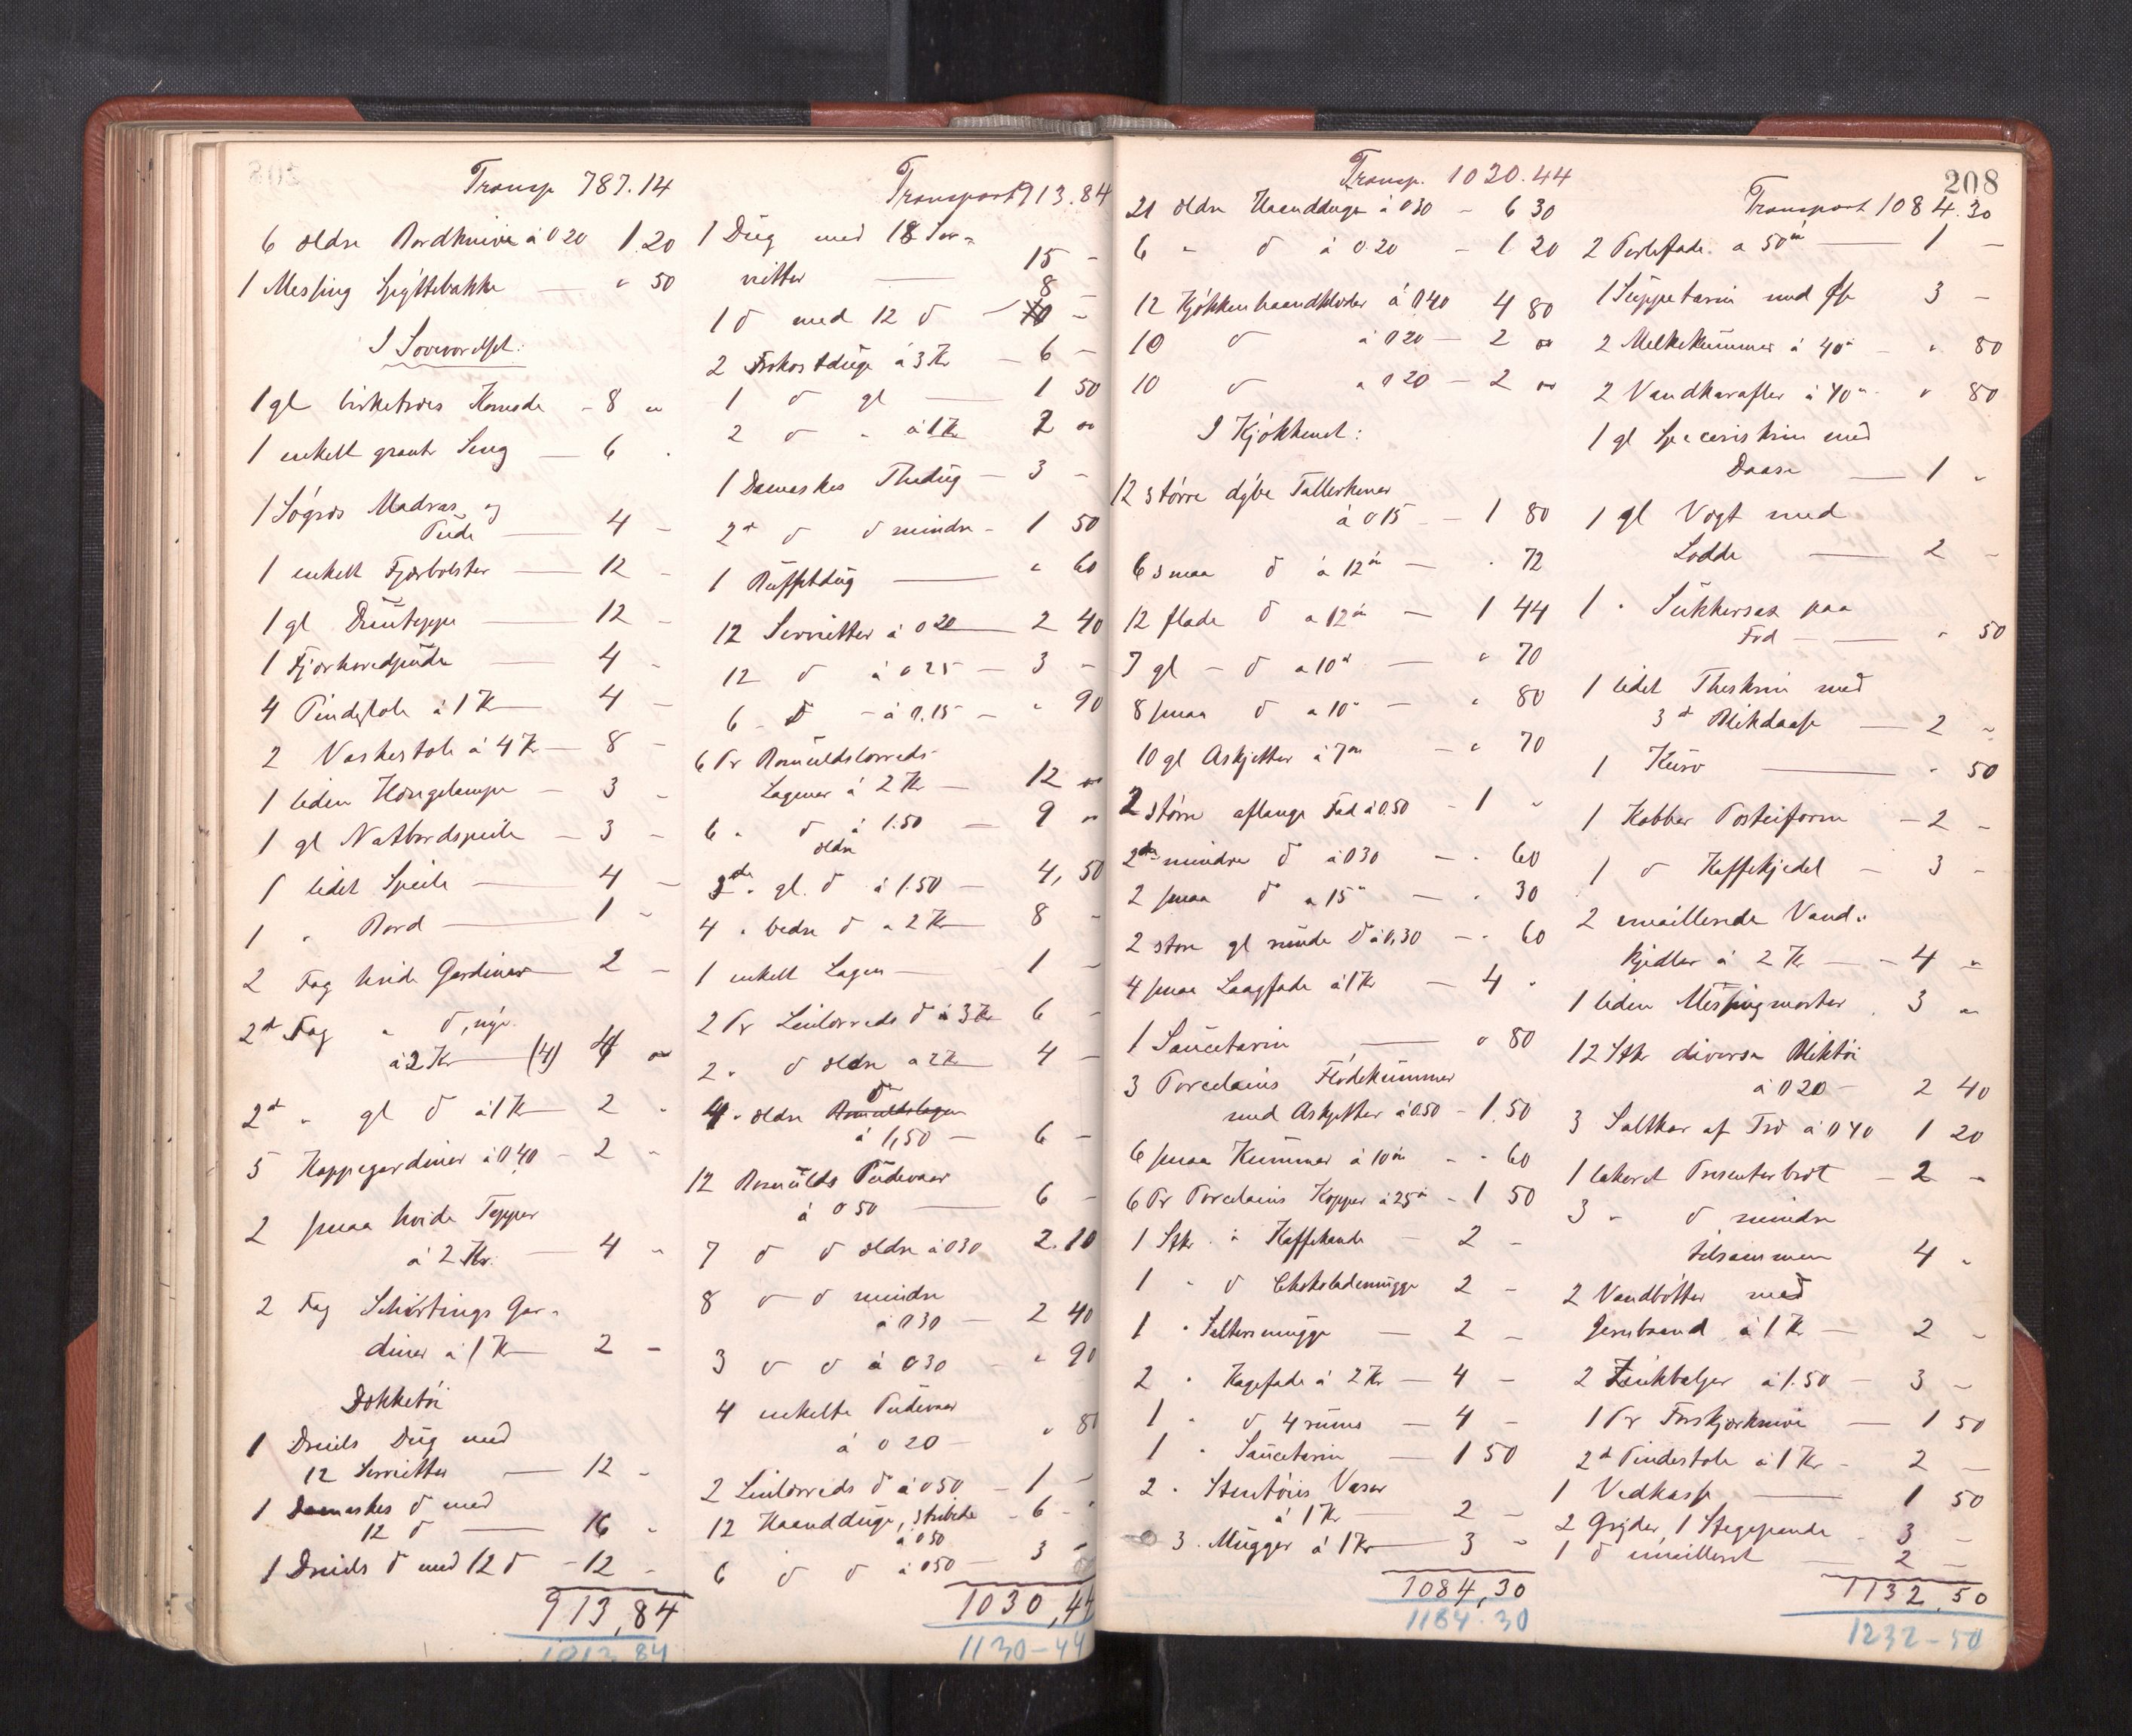 Transp 787.14
6 ældre Bordknive à 0 20 1.20
1 Messing Spyttebakke — " 50
I Soveværelset:
1 gl birketræes Komode - 8 "
1 enkelt grantr Seng — 6 -
1 Søgræs Madras og
Pude — 4 -
1 enkelt Fjærbolster — 12 -
1 gl Duntæppe — 12 -
1 Fjærhovedpude — 4 -
4 Pindestole à 1 Kr — 4 -
2 Vaskestole à 4 Kr — 8 -
1 liden Hængelampe — 3 -
1 gl Natbordspeile — 3 -
1 lidet Speile — 4 -
1 " Bord — 1 -
2 Fag hvide Gardiner — 2 -
2 d Fag " d, nye
à 2 Kr — (4) 4 "
2 d " gl d à 1 Kr — 2 -
5 Kappegardiner à 0,40 - 2 -
2 smaa hvide Tepper
à 2 Kr. — 4 -
2 Fag Schirtings Gar-
diner à 1 Kr — 2 -
Dækketøi
1 Dreils Dug med
12 Servietter — 12 -
1 Damaskes d med
12 d — 16 -
1 Dreils d med 12 d - 12 -
913,84
1013 84
Transport 913.84
1 Dug med 18 Ser-
vietter — 15 -
1 d med 12 d — 8 -
2 Frokostduge à 3 Kr — 6 -
1 d gl — 1 50
2 d " à 1 Kr 2 "
1 Damaskes Thedug — 3 -
2 d d d mindre - 1 50
1 Buffetdug — " 60
12 Servietter à 0 20 — 2 40
12 d à 0 25 — 3 -
6 - d - à 0.15 — " 90
6 Pr Bomuldslærreds
Lagener à 2 Kr — 12 "
6 " d à 1.50 — 9 "
ældre
3 " gl. d à 1.50 — 4,50
4 " bedre d à 2 Kr — 8 -
1 enkelt Lagen — 1 -
2 Pr Linlærreds d à 3 Kr 6 -
2 " d ældre a 2 Kr 4 -
d
4 " ældre Bomuldslagen
à 1,50 — 6 -
12 Bomulds Pudevaar
à 0 50 — 6 -
7 d d ældre à 0 30 2.10
8 d d mindre
à 0 30 — 2 40
3 d d à 0 30 - " 90
4 enkelte Pudevaar
à 0 20 - " 80
2 Linlærreds d à 0 50 - 1 -
12 Haandduge, stribede - 6 -
à 0 50
6 d d à 0 50 — 3 -
1030,44
1130-44
208
Transp. 1030.44
21 ældre Haandduge à 0 30 - 6 30
6 - d à 0.20 - 1 20
12 Kjøkkenhaandklæder à 0 40 4 80
10 d à 0 20 - 2 "
10 d a 0 20 - 2 "
I Kjøkkenet:
12 større dybe Tallerkener
à 0 15 - 1 80
6 smaa d à 12 ør — " 72
12 flade d a 12 ør — 1 44
7 gl - d a 10 ør — " 70
8 smaa d a 10 " — " 80
10 gl Askjetter à 7 ør — " 70
2 større aflange Fad à 0.50 - 1 "
2 mindre d à 0 30 — " 60
2 smaa d a 15 " — " 30
2 store gl runde d à 0,30 — " 60
4 smaa Laagfade à 1 Kr — 4 "
1 Saucetarin — " 80
3 Porcelains Flødekummer
med Askjetter à 0.50 - 1.50
6 smaa Kummer à 10 ør - " 60
6 Pr Porcelains Kopper à 25 ør - 1 50
1 Stk. " Kaffekande — 2 -
1 " d Chokolademugge 2 -
1 " Seltersmugge — 2 -
2 " Kagefade à 2 Kr — 4 -
1 " d 4 rums — 4 -
1 " Saucetarin — 1 50
2 " Stentøies Vaser
à 1 Kr — 2 -
3 " Mugger à 1 Kr — 3 -
1084,30
1184.30
Transport 1084.30
2 Terlefade. a 50 ør — 1 -
1 Suppetarin med 3 -
2 Melkekummer à 40 " - " 80
2 Vandkarafler à 40 " - " 80
1 gl Speceriskrin med
Daase — 1 "
1 gl Vægt med
Lodde — 2 -
1 " Sukkersax paa
Fod — " 50
1 lidet Theskrin med
3 d Blikdaase — 2 "
1 Kurv — " 50
1 Kobber Posteiform — 2 -
1 d Kaffekjedel - 3 -
2 emaillerede Vand-
kjedler à 2 Kr — 4 "
1 liden Messingmorter 3 "
12 Stkr diverse Bliktøi
à 0 20 - 2 40
3 Saltkar af Træ à 0 40 1 20
1 lakeret Presenterbræt — 2 -
3 " d mindre
tilsammen 4 "
2 Vandbøtter med
Jernbaand à 1 Kr — 2 -
2 Zinkbaljer à 1.50 — 3 -
1 Pr Forskjærknive — 1 50
2 d Pindestole à 1 Kr - 2 —
1 Vedkasse — 1 50
2 Gryder, 1 Stegepande - 3 -
1 d emailleret — 2 -
1132.50
1232-50